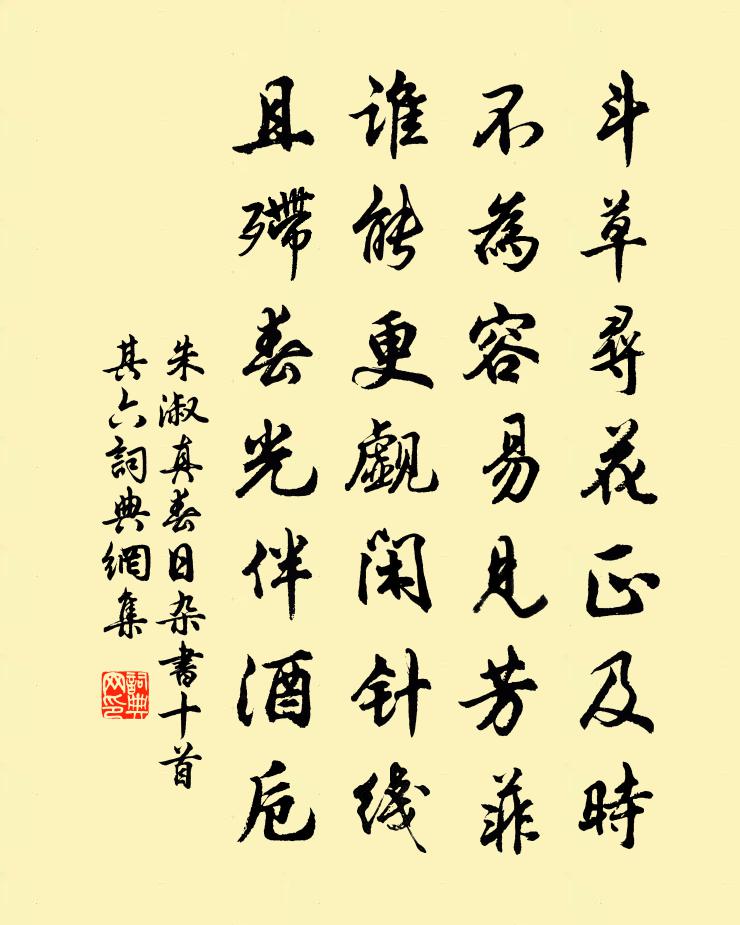 斗草尋花正及時
不為容易見芳菲
谁能更覷闲针线
且殢春光伴酒卮
朱淑真春日杂書十首
其六詞典網集
詞典
网印